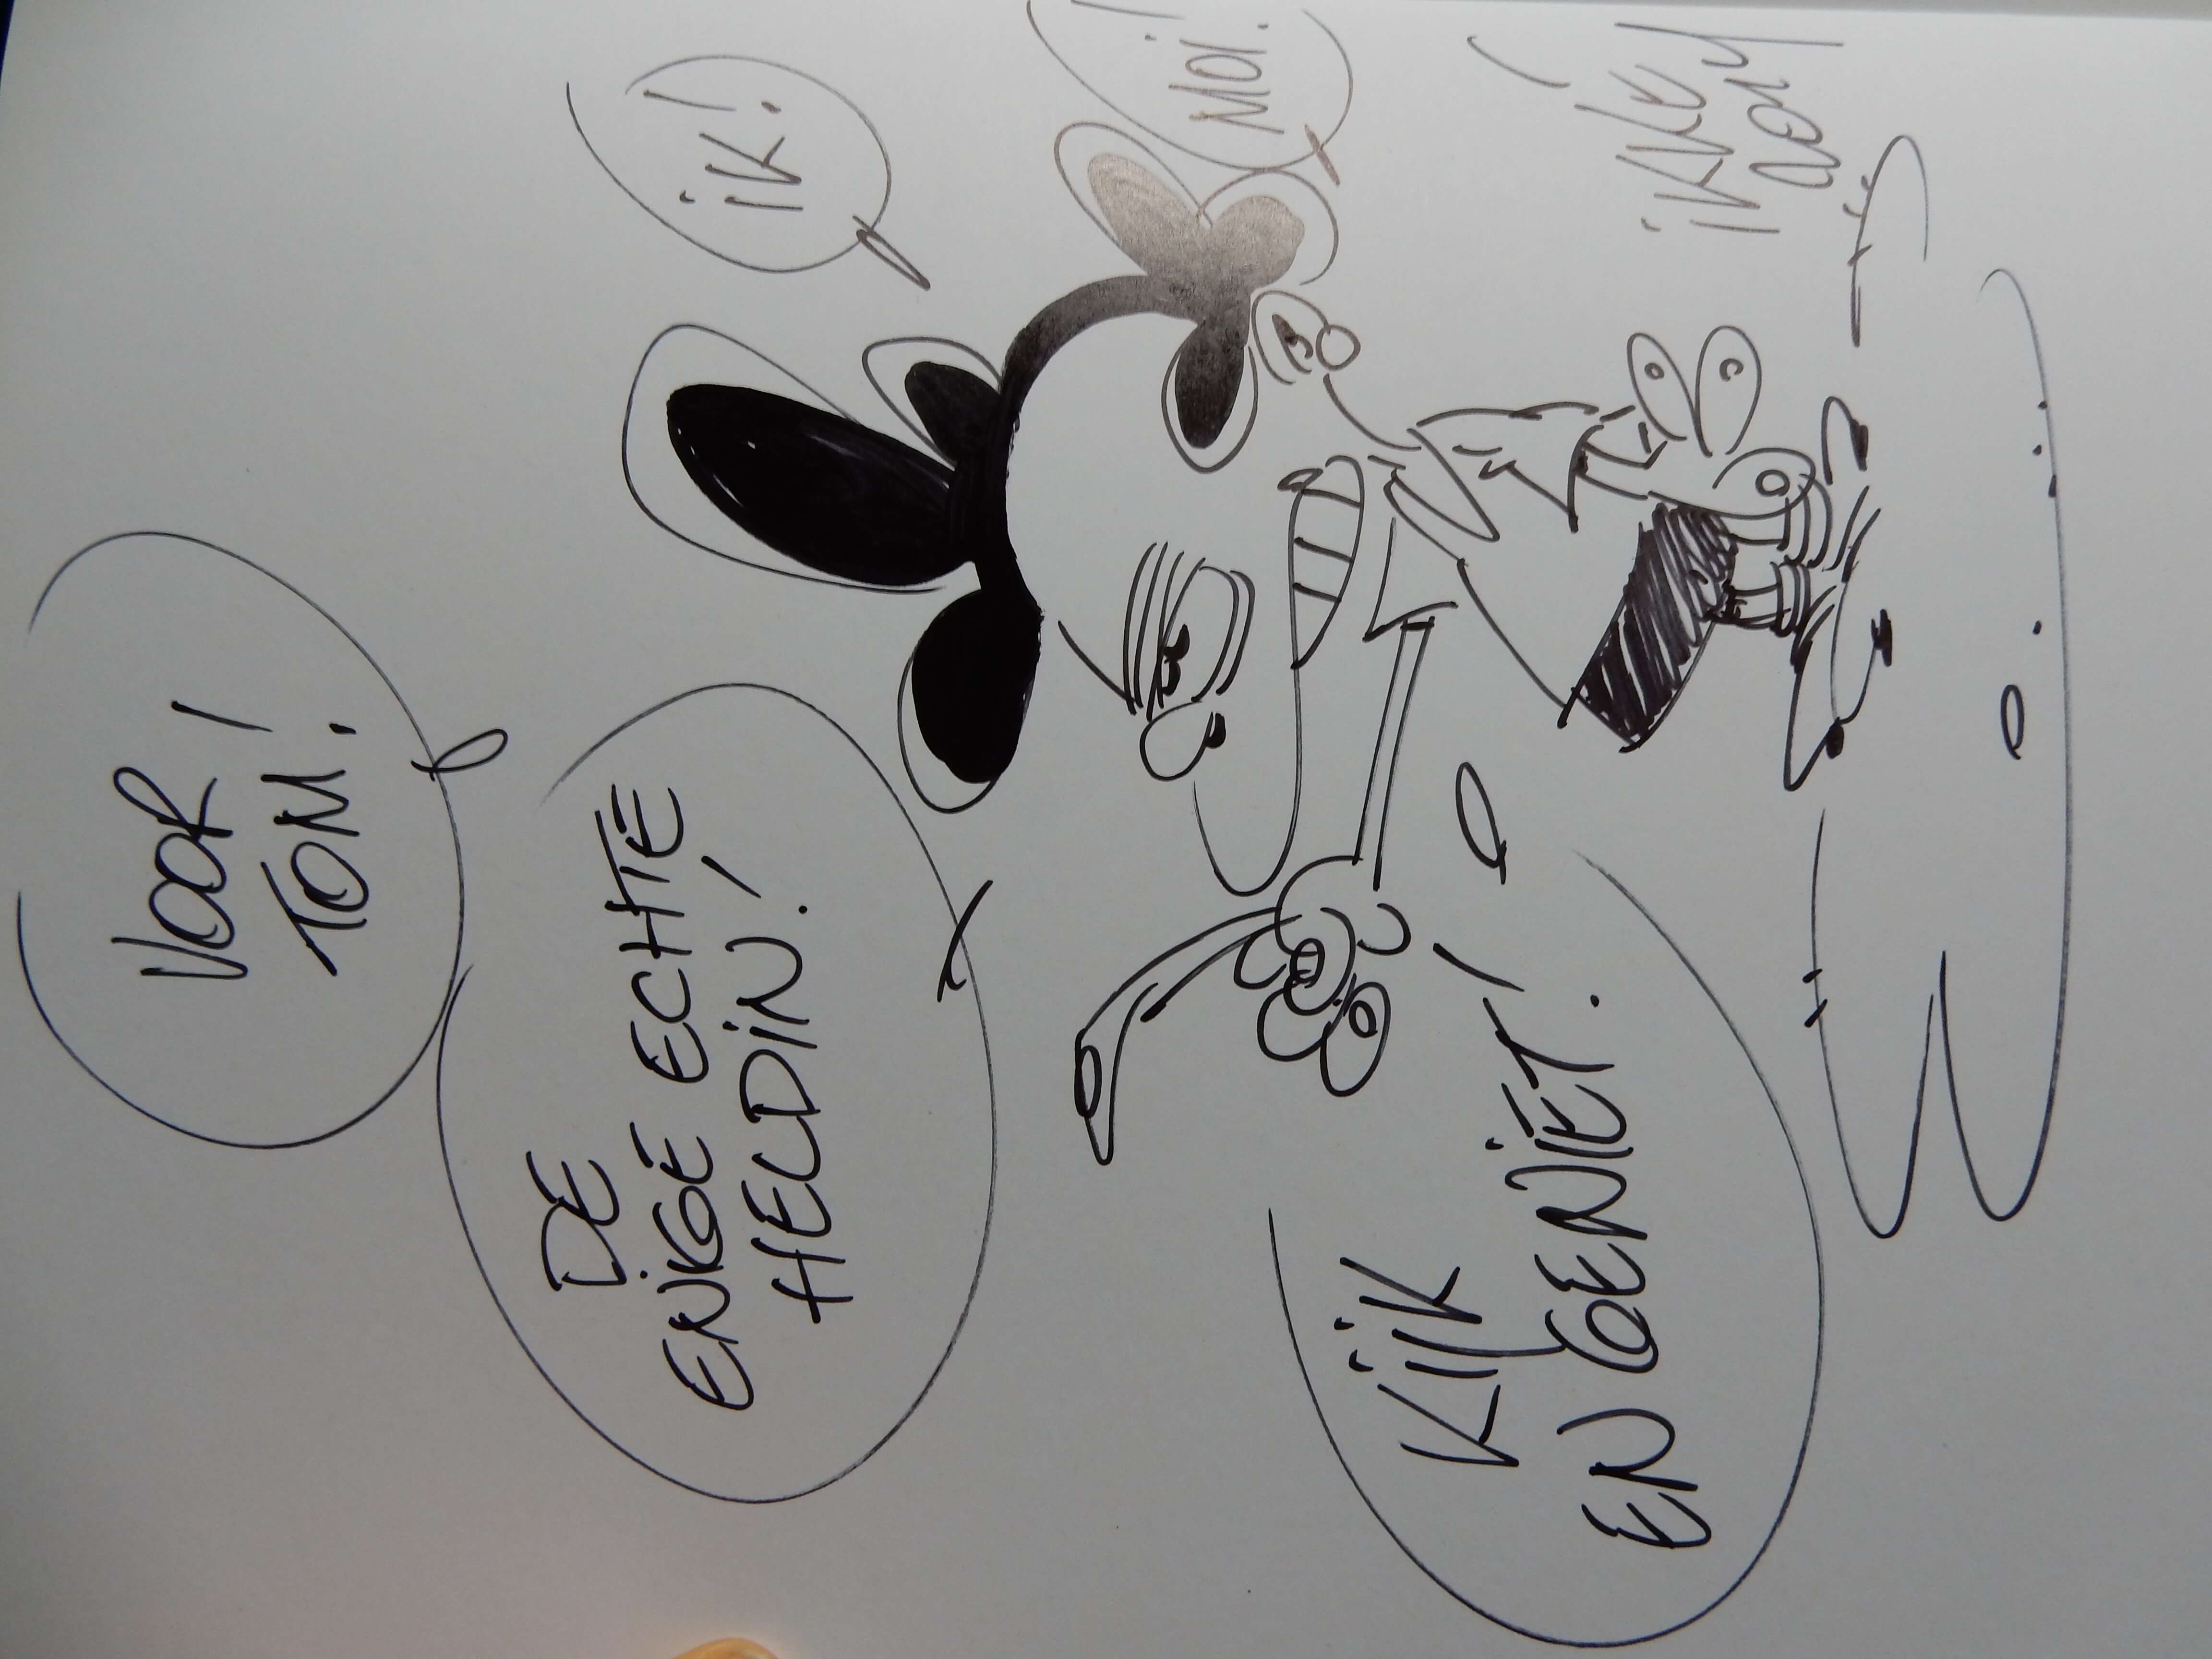 VOOR
TOM!
DE
ENIGE ECHTE
HELDIN!
IK!
MOI!
KIJK
EN GENIET!
IKKE
2014